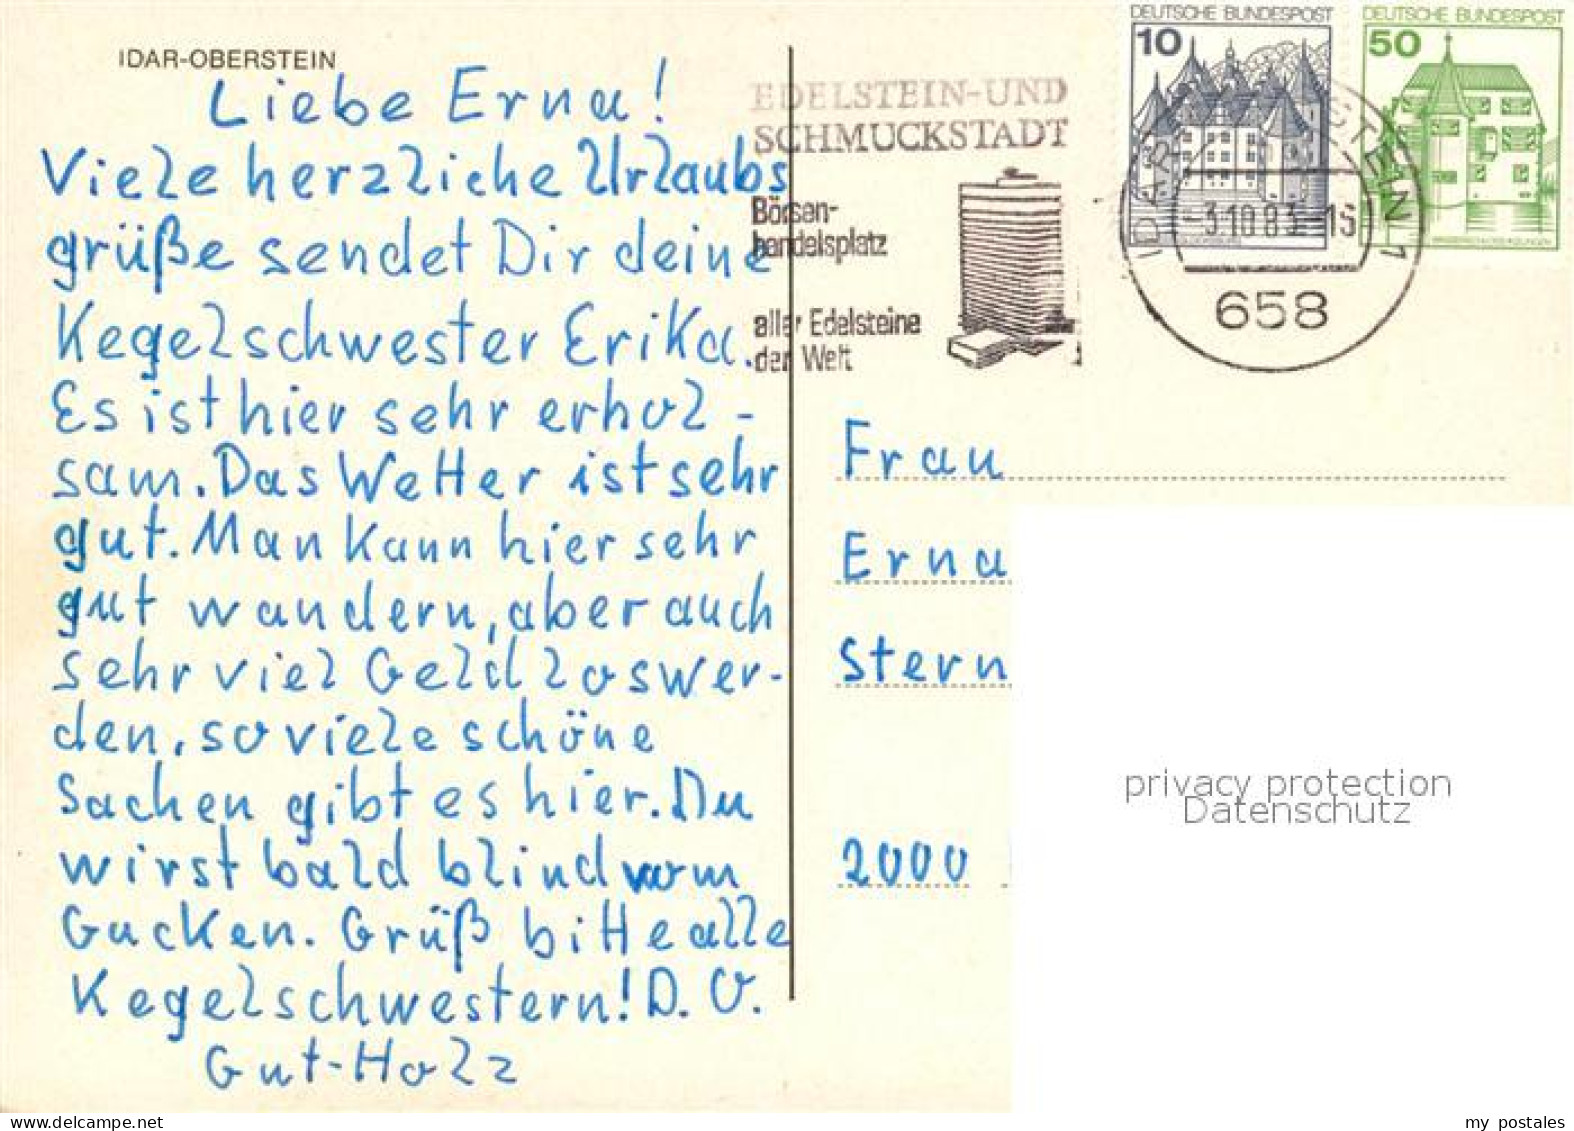 IDAR-OBERSTEIN
Liebe Erna!
Viele herzliche Urlaubs
grüße sendet Dir deine
Kegelschwester Erika.
Es ist hier sehr erhol-
sam. Das Wetter ist sehr
gut. Man kann hier sehr
gut wandern, aber auch
sehr viel Geld loswer-
den, so viele schöne
Sachen gibt es hier. Du
wirst bald blind vom
Gucken. Grüß bitte alle
Kegelschwestern! D. O.
Gut-Holz
EDELSTEIN-UND
SCHMUCKSTADT
Börsen-
handelsplatz
aller Edelsteine
der Welt
DEUTSCHE BUNDESPOST
10
DEUTSCHE BUNDESPOST
50
IDAR-OBERSTEIN 1
-3.10.83-15
658
Frau
Erna
Stern
2000
privacy protection
Datenschutz
my postales